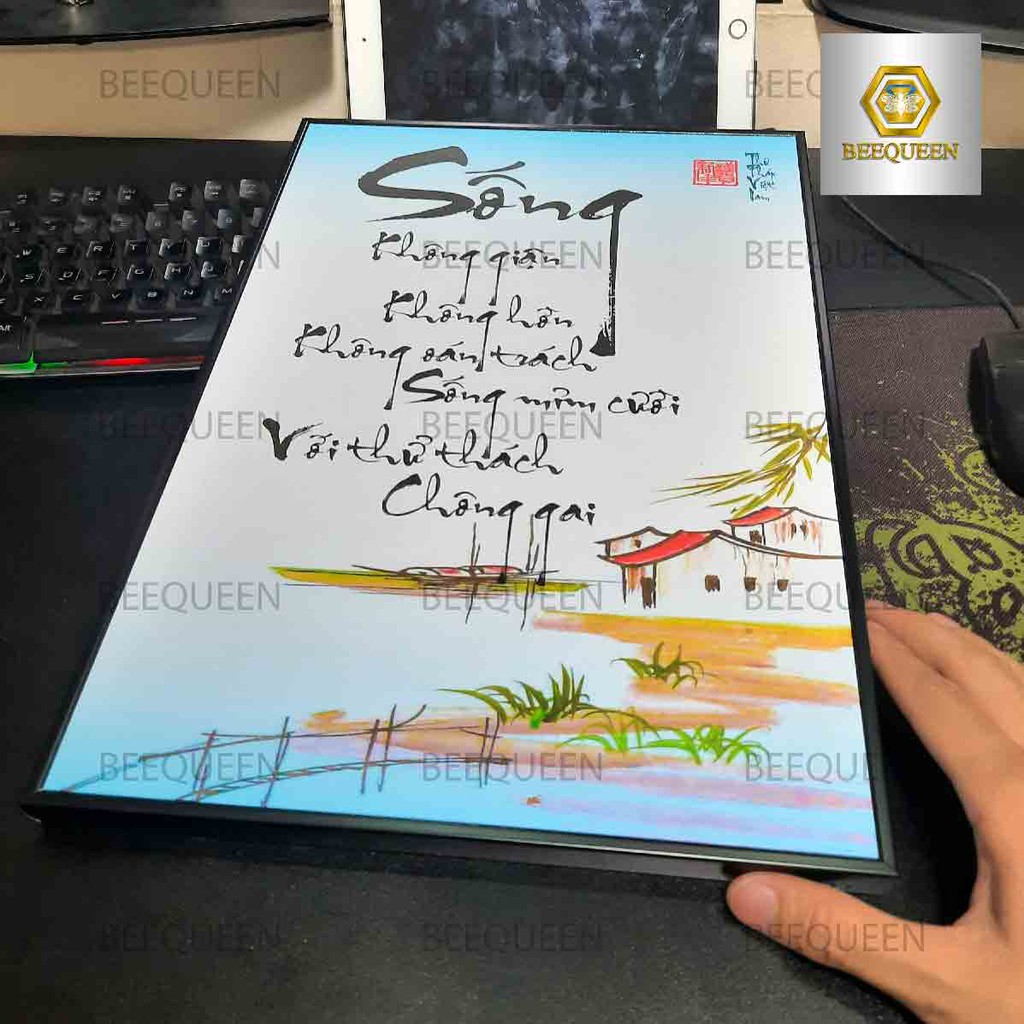 BEEQUEEN
Thư
Pháp
Việt
Nam
Sống
Không giận
Không hờn
Không oán trách
Sống mỉm cười
Với thử thách
Chông gai
BEEQUEEN BEEQUEEN BEEQUEEN
BEEQUEEN BEEQUEEN BEEQUEEN
BEEQUEEN BEEQUEEN BEEQUEEN
BEEQUEEN BEEQUEEN BEEQUEEN
BEEQUEEN BEEQUEEN BEEQUEEN
BEEQUEEN BEEQUEEN BEEQUEEN